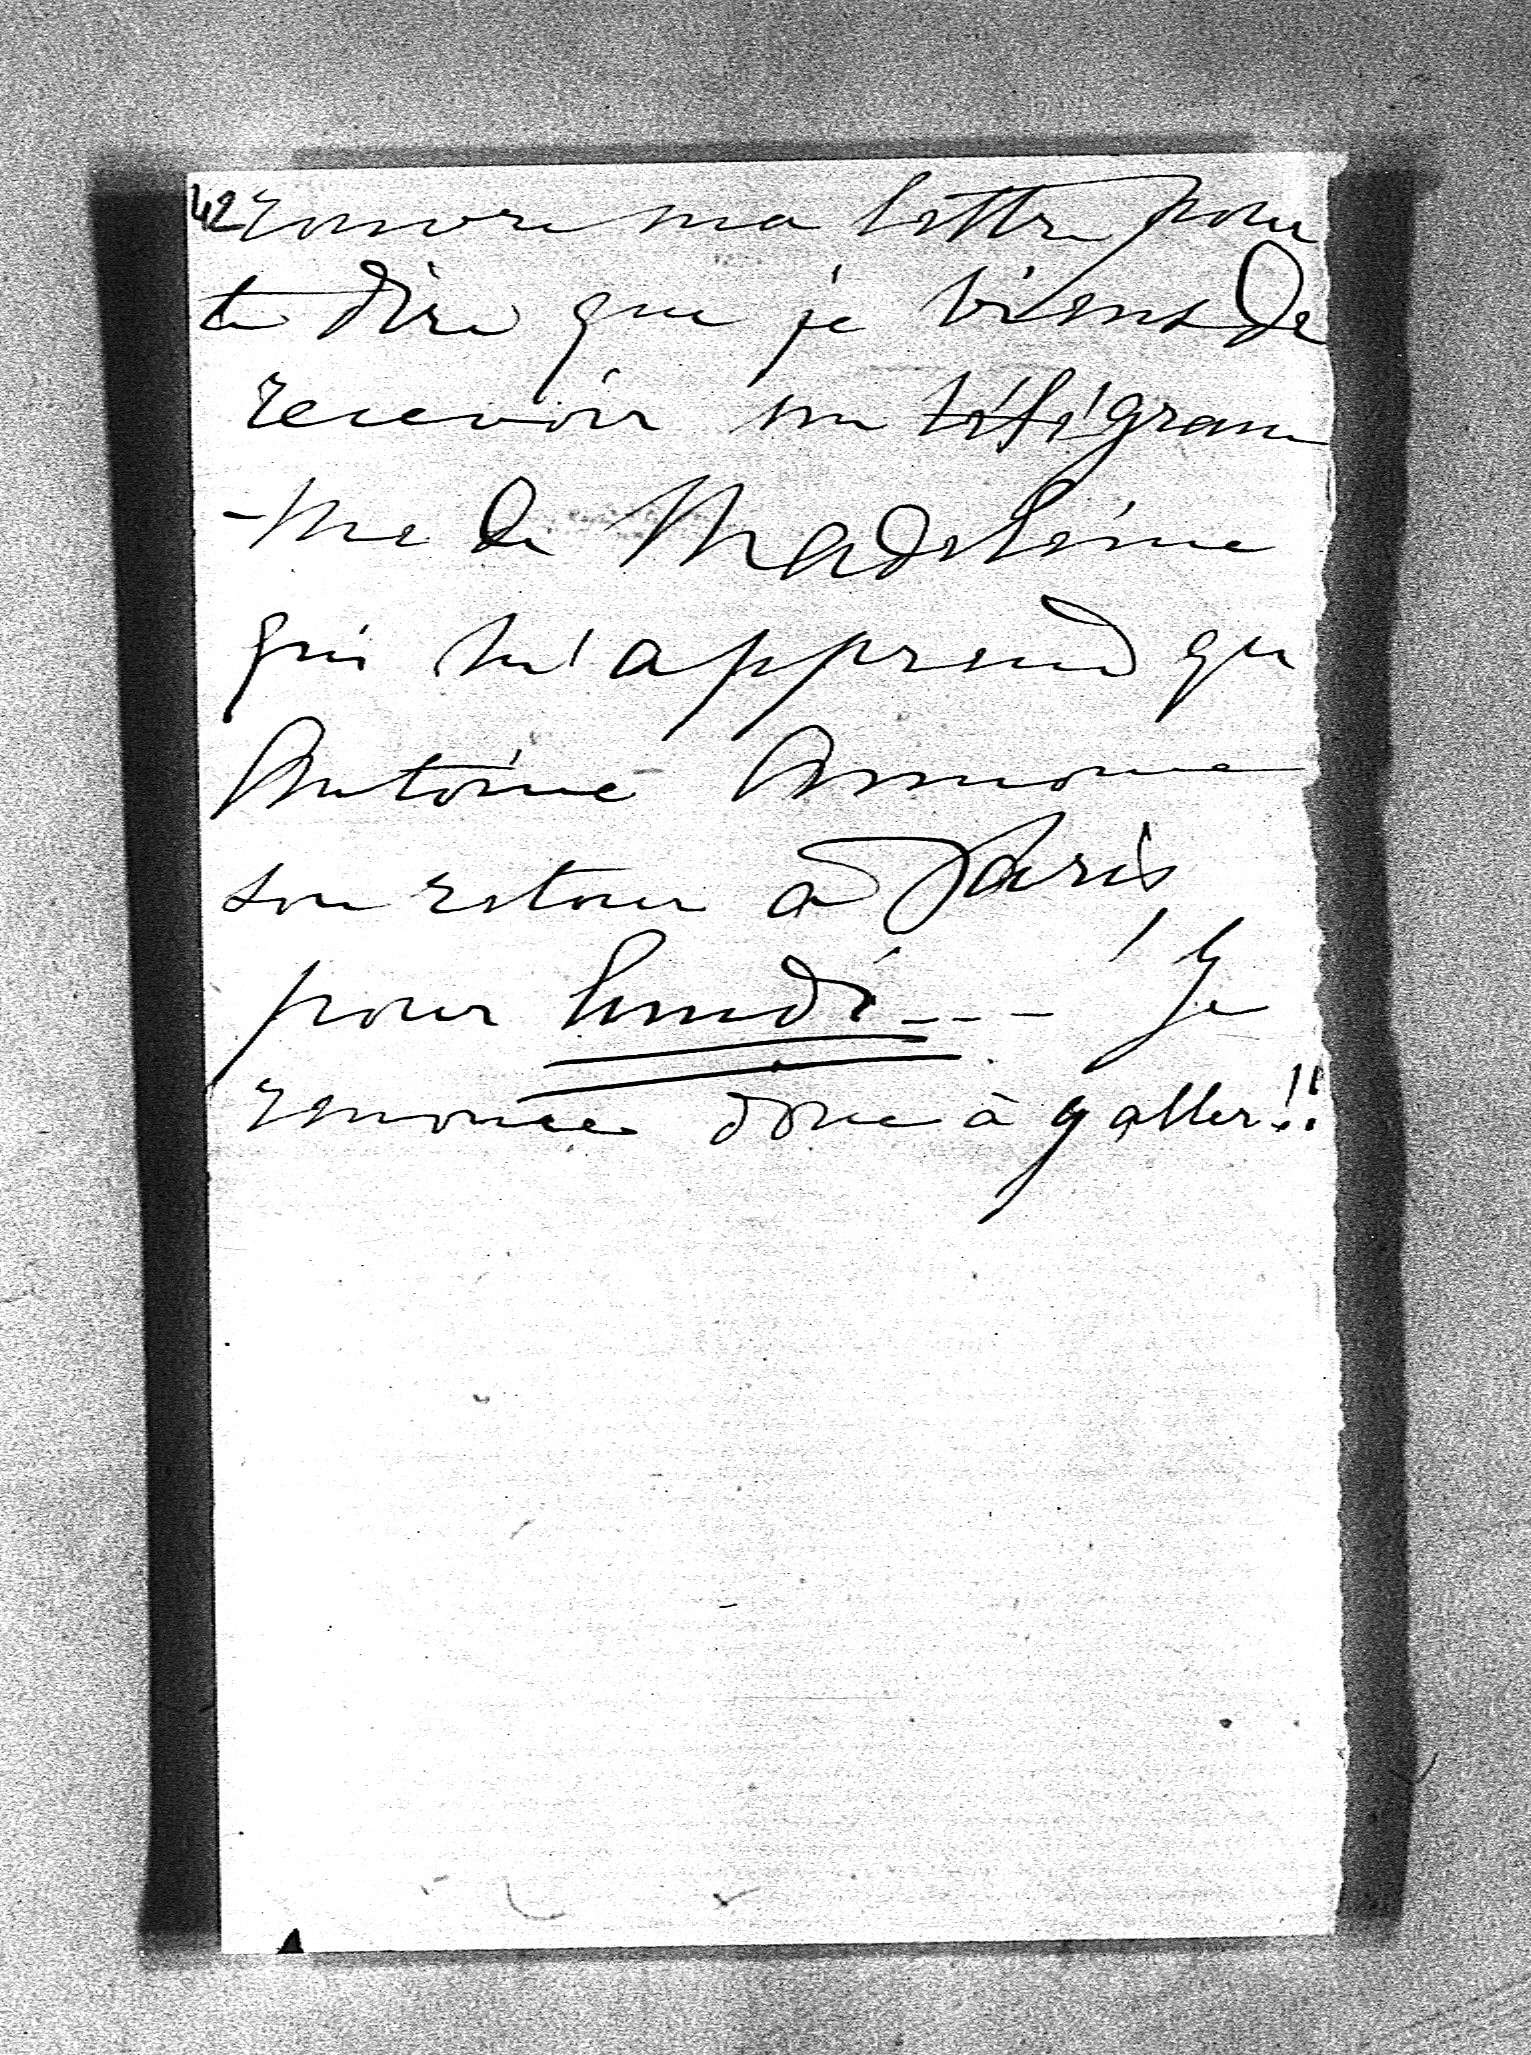 42 rouvre ma lettre pour
te dire que je viens de
recevoir un télégram
-me de Madeleine
qui m'apprend que
Antoine annonce
son retour à Paris
pour lundi --- Je
renonce donc à y aller!!